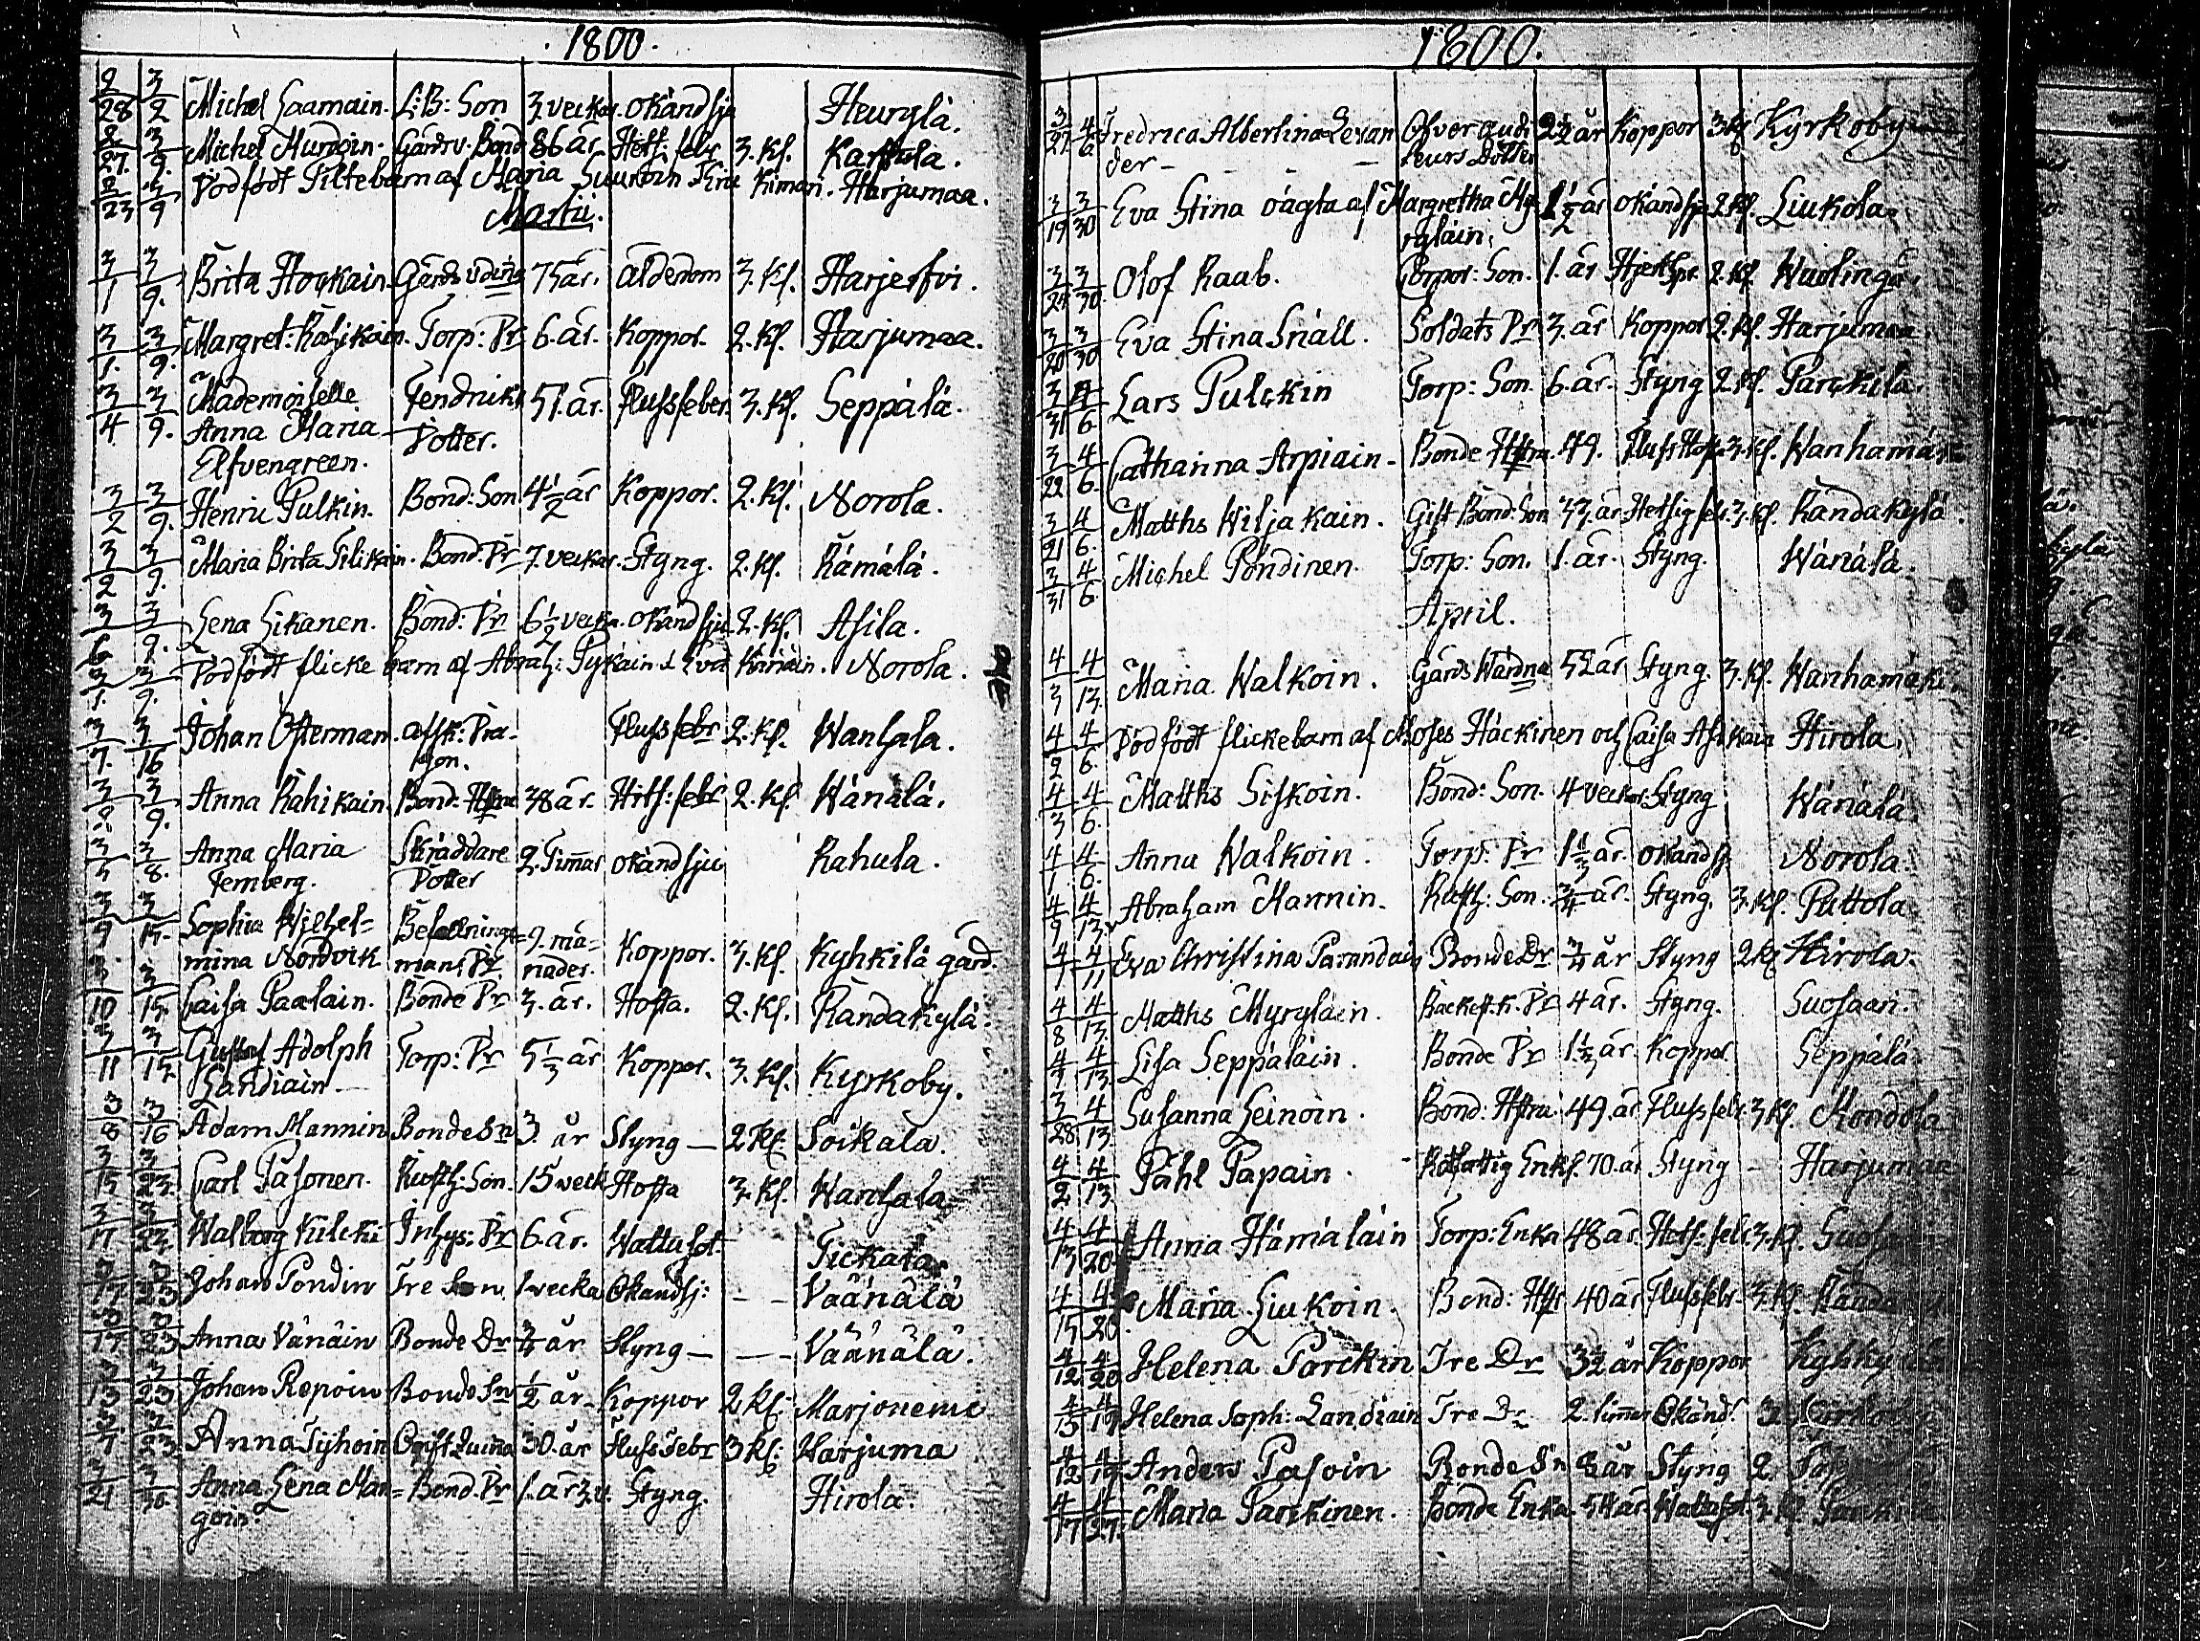 1800.
2/28 3/2 Michel Saamain. L:B: Son 3 veckor. okänd sju Heurylä.
2/27. 3/9. Michel Hurdoin. Gårdv. Bond 86 år. Hets: febr 3. Kl. Karttula.
2/23 3/9 Dödfödt Piltebarn af Maria Kiman. Harjumaa.
Martii.
3/1 3/9. Brita Hockain. 75 år. ålderdom 3. Kl. Harjerfvi.
3/1. 3/9. Margret: Torp: Dr 6. år. Koppor. 2. Kl. Harjumaa.
3/4 3/9. Mademoiselle Fendriks 51. år. Flussfeber. 3. Kl. Seppälä.
Anna Maria Dotter.
Elfvengreen.
3/2 3/9. Henric Pulkin. Bond: Son 4 1/2 år Koppor. 2. Kl. Norola.
3/2 3/9. Maria Brita Tilikain. Bond. Dr 7. veckor. Styng. 2. Kl. Rämälä.
3/6 3/9. Lena Likanen. Bond: Dr 6 1/2 vecka. okänd sju 2. Kl. Asila.
3/1. 3/9. Dödfödt flicke barn af Abrah: Pykain & Eva Norola.
3/7. 3/16 Johan Osterman. afsk: Dra- Flussfebr 2. Kl. Wanhala.
gon.
3/2. 3/9. Anna Rähikain Bond. Hstru 38 år. Hets: febr 2. Kl. Wänälä.
3/5 3/8. Anna Maria Skräddare 2. Timar okänd sju Rahula.
Temberg. Dotter
3/9 3/15. Sophia Wilhel= Befallnings= 9. må= Koppor. 3. Kl. Kyhkilä gård.
mina Nordvik mans Dr nader.
3/10 3/15. Caisa Paalain. Bonde Dr 3. år. Hosta. 2. Kl. Randakylä.
3/11 3/15. Gustaf Adolph Torp: Dr 5 1/3 år Koppor. 3. Kl. Kyrkoby.
Landiain
3/8 3/16 Adam Mannin Bonde Sn 3. år Styng — 2 Kl: Soikala.
3/15 3/23. Carl Päsonen. Rusth: Son. 15 veck Hosta 3. Kl. Wanhala
3/17 3/23. Walborg Kulcki Inhys: Dr 6. år. Wattusot. Tickala.
3/17 3/23 Johan Pondin Tre Son, 1 vecka Okänd sj: — — Väänälä
3/17 3/23 Anna Vänäin Bonde Dr 3/4 år Styng — — — Väänälä.
3/13 3/23 Johan Repoin Bonde Sn 1/2 år Koppor 2 Kl: Marjoneme
3/7 3/23. Anna Tyhoin Ogift Quina 30. år Flussfebr 3 Kl: Harjuma
3/21 3/30. Anna Lena Han= Bond. Dr 1. år 3. v. Styng. Hirola.
goin.
1800.
3/27 4/6 Fredrica Albertina Levan Öfver audi 2 1/2 år Koppor 3 Kl Kyrkoby
der — teurs Dotter
3/19 3/30 Eva Stina oägta af Margretha My 1 1/2 år okänd sju 2 Kl. Liukola.
rylain.
3/24 3/30. Olof Raab. Corpor: Son. 1. år 2. Kl. Wuolinga.
3/20 3/30 Eva Stina Snäll. Soldats Dr 3. år Koppor 2. Kl. Harjumaa
3/31 4/6 Lars Pulckin Torp: Son. 6. år. Styng 2. Kl. Parckila.
3/22 4/6. Catharina Arpiain. Bonde Hstru. 49. 3. Kl. Wanhamäki
3/21 4/6. Matths Wiljakain. Gift Bond: Son 33. år Hetsig febr. 3. Kl. Randakylä.
3/31 4/6. Michel Pöndinen. Torp: Son. 1. år. Styng. Wänälä.
April.
4/3 4/13. Maria Walkoin. Gårds Wärdna 52 år Styng. 3. Kl. Wanhamäki.
4/2 4/6. Dödfödt flickebarn af Moses Häckinen och Caisa Asikain Hirola.
4/3 4/6. Matths Siskoin. Bond: Son. 4 veckor. Styng Wänälä.
4/1 4/6. Anna Walkoin. Torp: Dr 1 1/3 år. okänd sj. Norola.
4/9 4/13. Abraham Mannin. Rusth: Son. 3/4 år. Styng. 3. Kl. Puttola.
4/1 4/11 Eva Christina Parandain Bonde Dr 3/4 år Styng 2 Kl Hirola.
4/8 4/13. Matths Myryläin. 4 år. Styng. Suosaari.
4/7 4/13 Lisa Seppäläin. Bonde Dr 1 1/2 år Koppor. Seppälä.
3/28 4/13. Susanna Leinoin. Bond: Hstru 49. år Flussfebr. 3 Kl. Mondola
4/2 4/13 Påhl Papain. Rotfattig Enkl. 70. år Styng — Harjumaa
4/13 4/20. Anna Hämäläin Torp: Enka 48 år Hets: febr. 3. Kl.
4/15 4/20. Maria Liukoin. Bond: Hstr 40 år Flussfebr. 3. Kl.
4/12 4/20 Helena Parckin Tre Dr 3 1/2 år Koppor
4/15 4/19 Helena Soph: Landiain Tre Dr 2. timar Okänd. 3
4/12 4/19 Anders Pasoin Bonde Sn år Styng 2
4/17 4/27. Maria Parckinen. Bonde Enka 54 år. Wattusot. 3. Kl